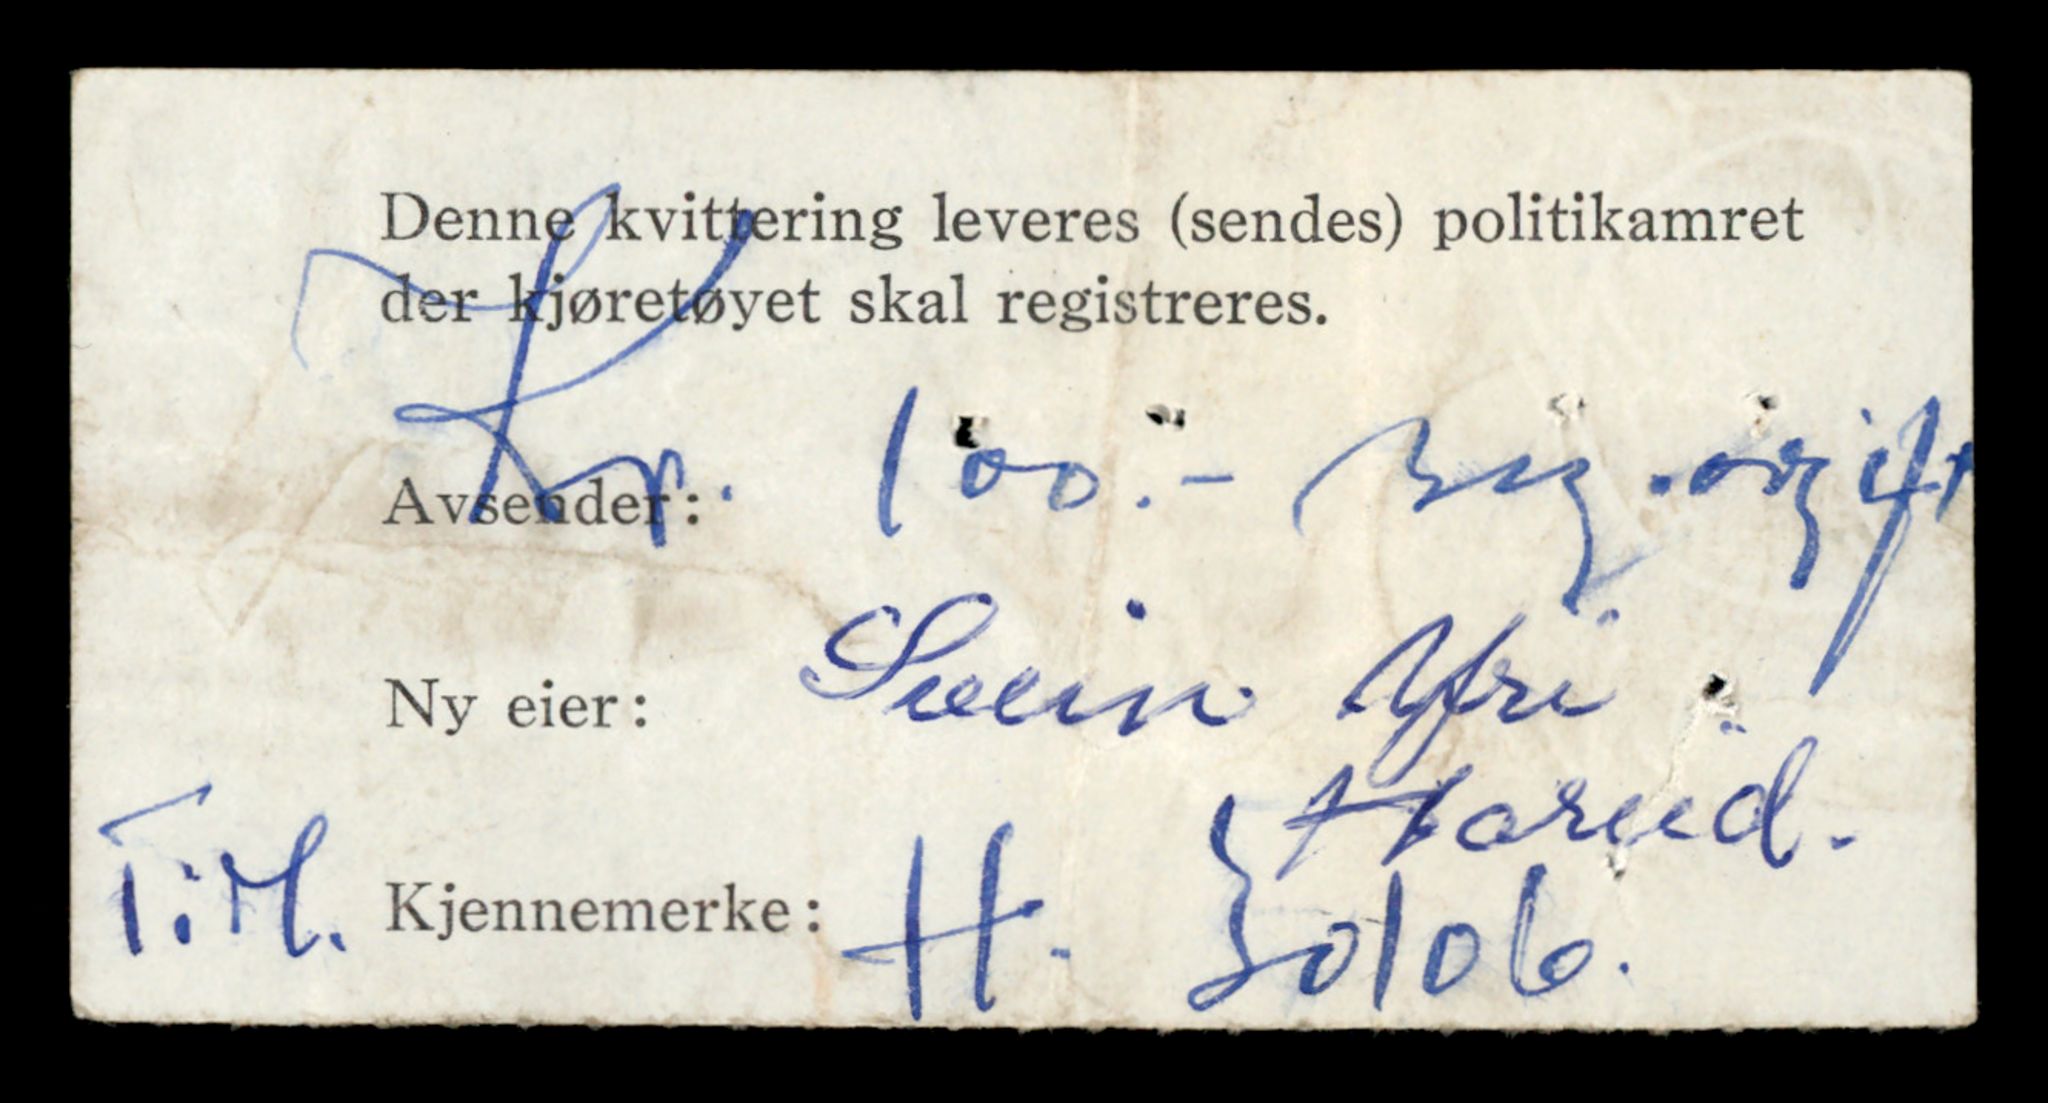 Denne kvittering leveres (sendes) politikamret
der kjøretøyet skal registreres.
Kr. 100.- reg.avgift
Avsender:
Ny eier: Svein Yfri
Hareid.
T:H. Kjennemerke: H. 30106.